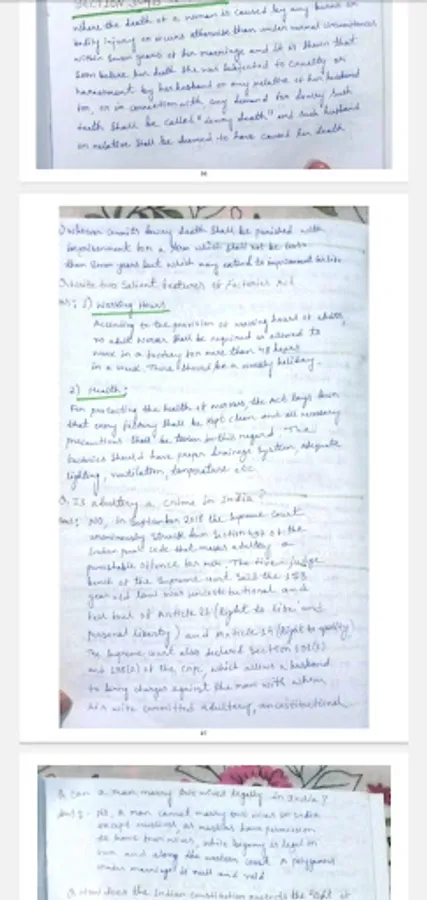 SECTION 304B
Where the death of a woman is caused by any burns or
bodily injury or occurs otherwise than under normal circumstances
within seven years of her marriage and it is shown that
soon before her death she was subjected to cruelty or
harassment by her husband or any relative of her husband
for, or in connection with, any demand for dowry such
death shall be called "dowry death" and such husband
or relative shall be deemed to have caused her death
whoever commits dowry death shall be punished with
imprisonment for a term which shall not be less
than seven years but which may extend to imprisonment for life
Write two salient features of Factories Act
Ans: 1) Working Hours
According to the provision of working hours of adults,
no adult worker shall be required or allowed to
work in a factory for more than 48 hours
in a week. There should be a weekly holiday.
2) Health:
For protecting the health of workers, the Act lays down
that every factory shall be kept clean and all necessary
precautions shall be taken in this regard. The
factories should have proper drainage system, adequate
lighting, ventilation, temperature etc.
Q. Is adultery a crime in India?
Ans: NO, in September 2018 the Supreme Court
unanimously struck down Section 497 of the
Indian penal code that makes adultery a
punishable offence for men. The five-judge
bench of the Supreme court said the 158
year old law was unconstitutional and
foul of Article 21 (Right to life and
personal liberty) and Article 14 (Right to equality)
The Supreme court also declared Section 198(1)
and 198(2) of the CrPC, which allows a husband
to bring charges against the man with whom
his wife committed adultery, unconstitutional
Q Can a man marry two wives legally in India?
Ans: - NO, A man cannot marry two wives in India
except muslims, as muslims have permission
to have two wives, while bigamy is legal in
Goa and along the western coast A polygamous
Hindu marriage is null and void
Q How does the Indian constitution protects the right of